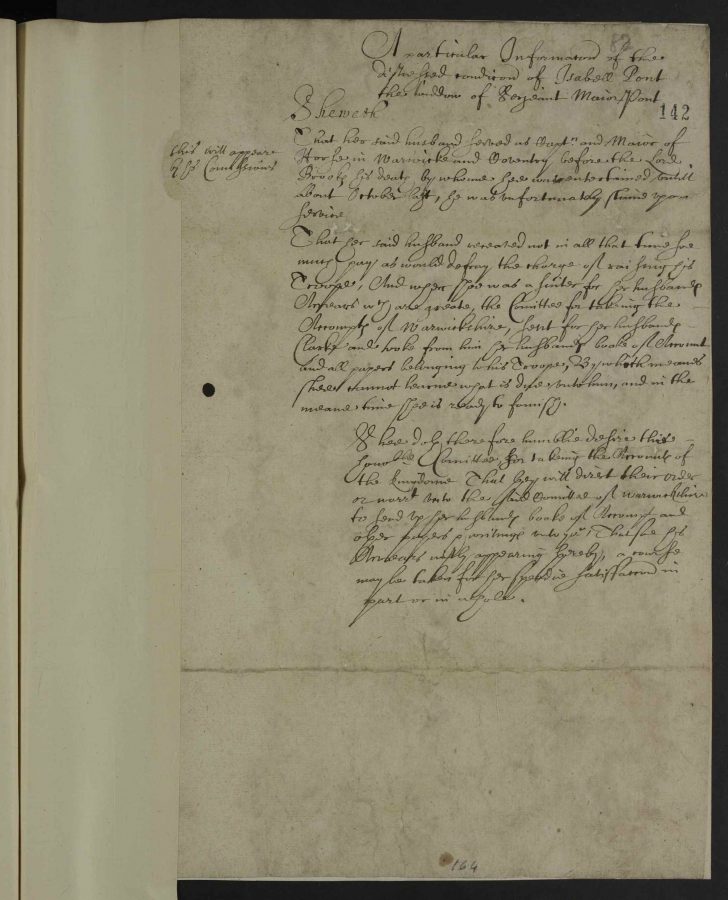 82
A particular Information of the
distressed condicon of Isabell Pont
the widdow of Serjeant Maior Pont
142
Sheweth
this will appeare
by his Commissions
That her said husband served as Capt: and Maior of
Horse in Warwicke and Coventry before the Lord
Brooks his death by whome hee was entertained untill
about October last, he was unfortunately slaine upon
service
That her said husband received not in all that time soe
much pay as would defray the charge of raising his
Troope, And when shee was a suiter for her husbands
Arrears wch are greate, the Comittee for takeing the
Accompts of Warwickshire, sent for her husbands
Clarke and tooke from him her husbands booke of Account
and all papers belonging to his Troope, By which meanes
shee cannot learne what is due unto him, and in the
meane time shee is ready to famish.
Shee doth therefore humblie desire this
honoble Comittee for takeing the Accounts of
the kingdome That they will direct their order
or warrt unto the said Comittee of Warwickshire
to send up her husbands booke of Accompts and
other papers & writings unto you: That soe his
Arreares justly appearing thereby, a course
may be taken for her speedie satisfaction in
part or in whole.
164